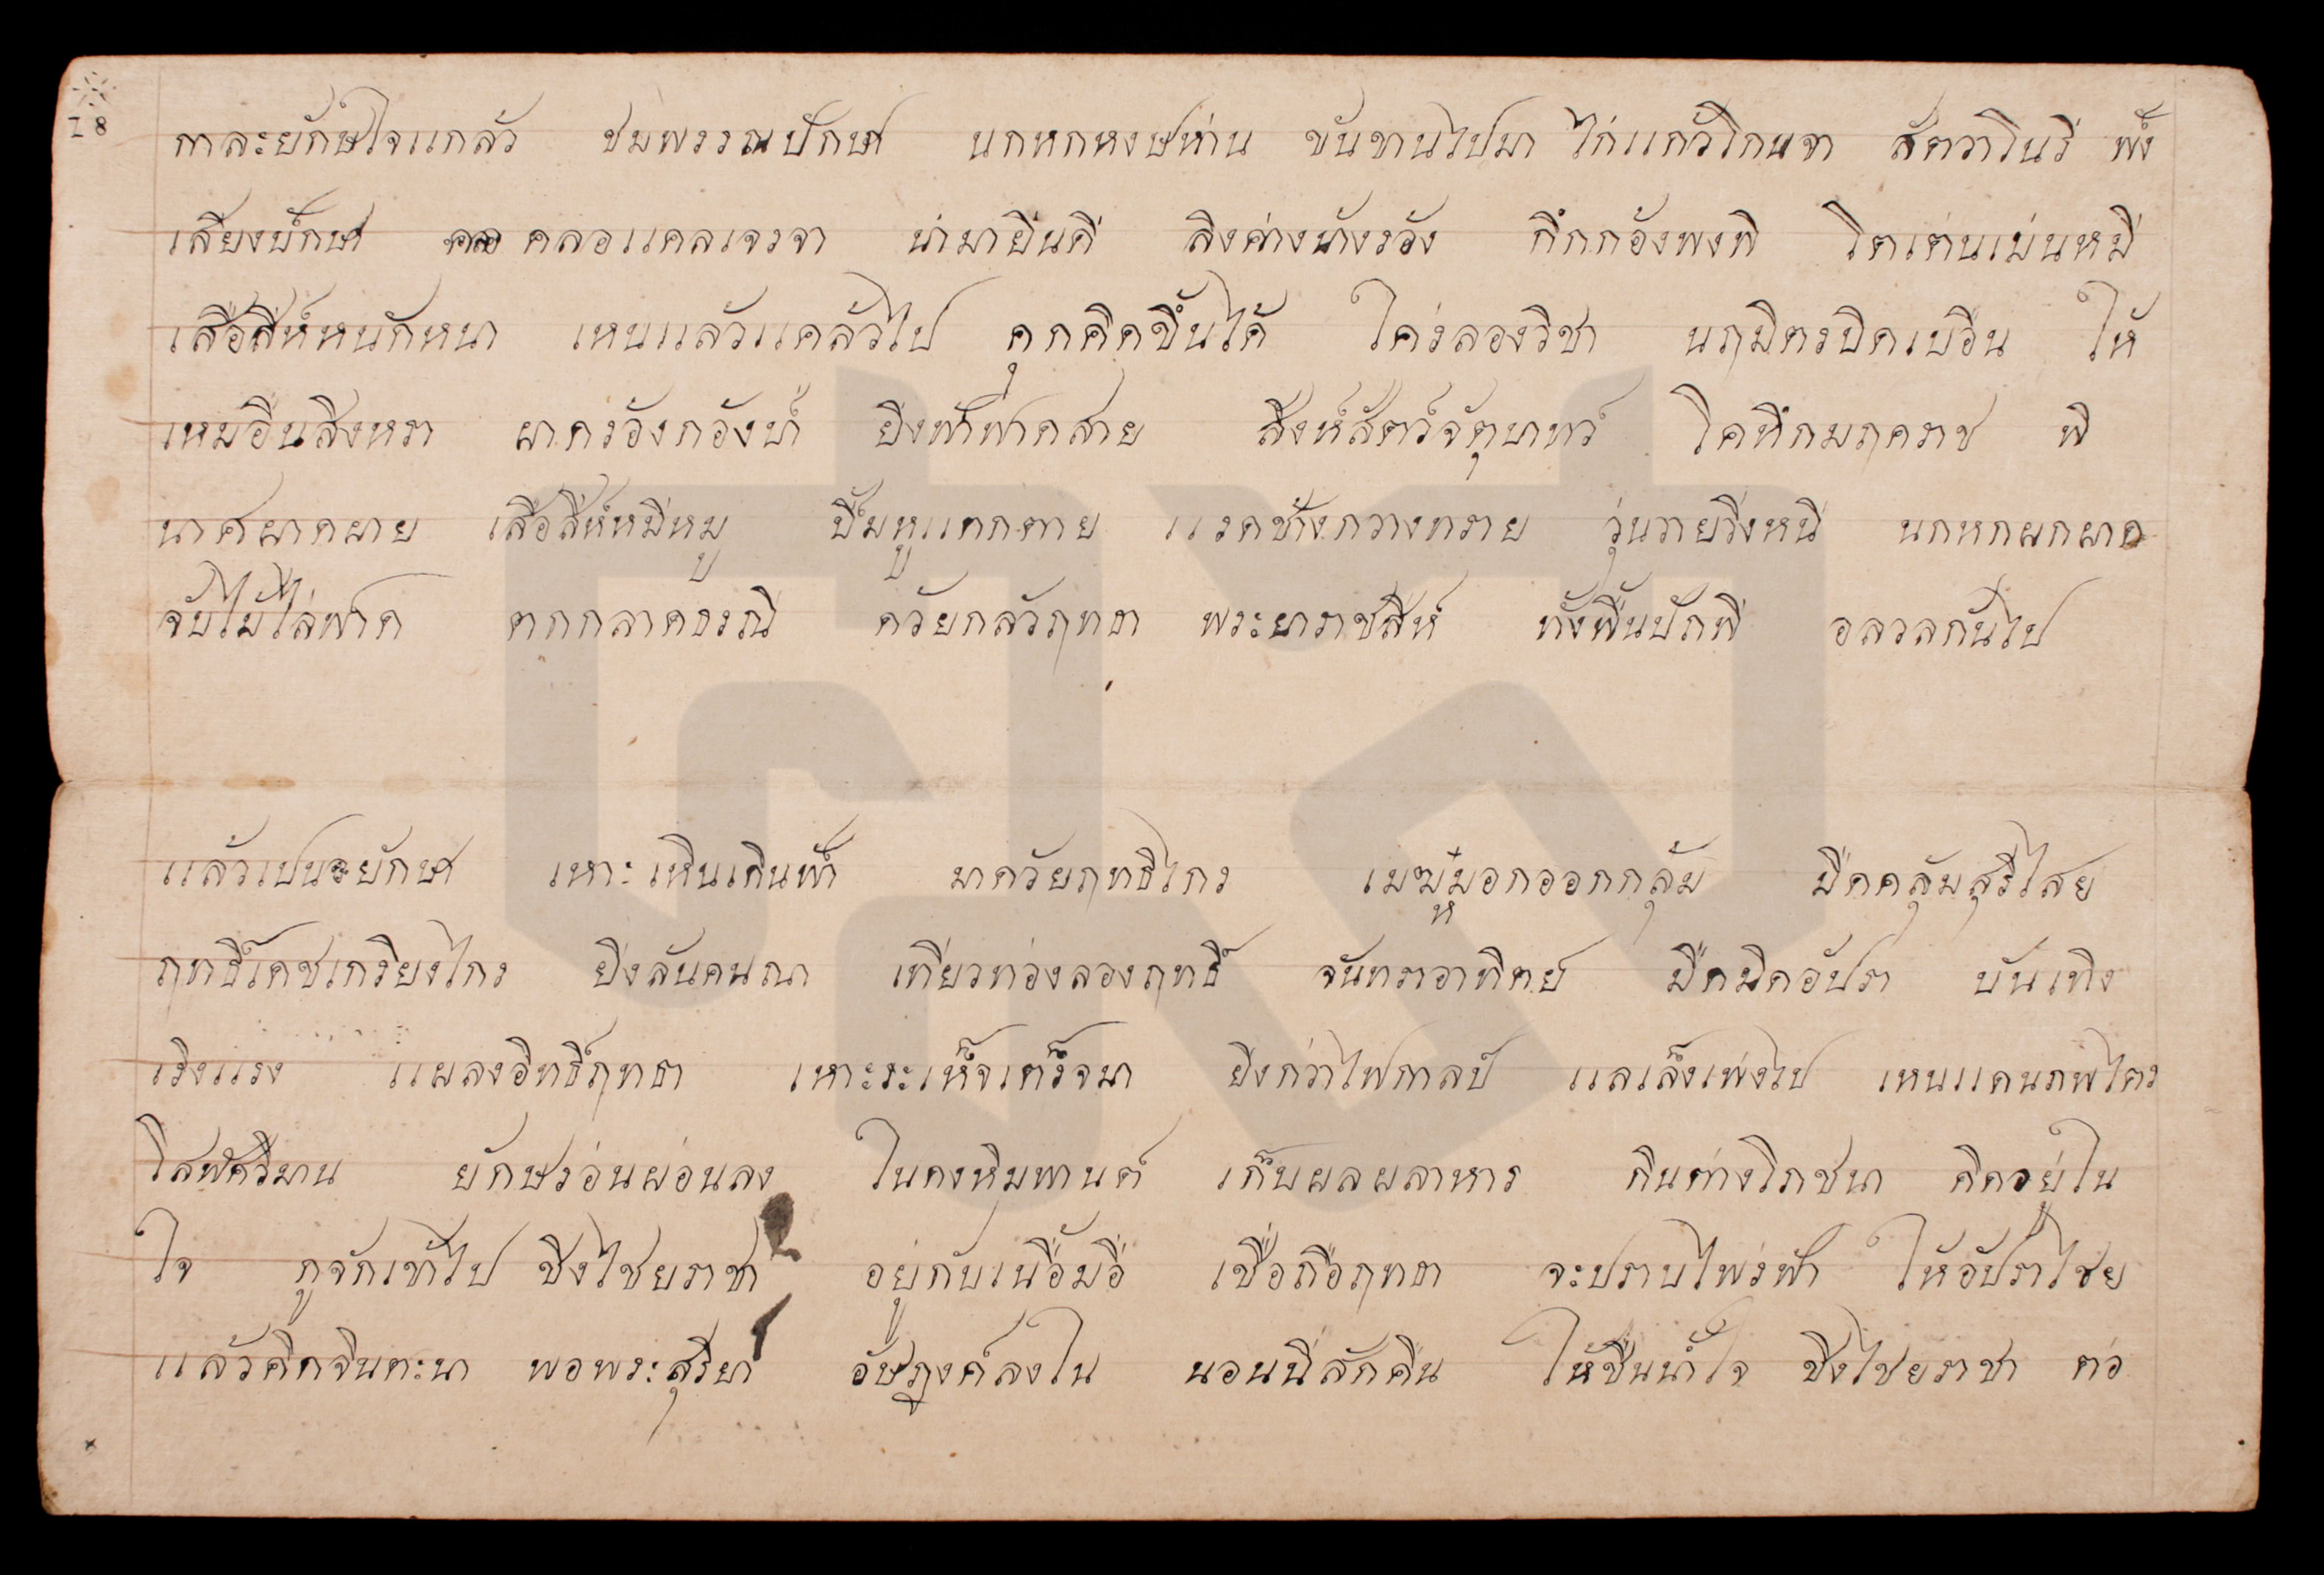 28
กาละยักษใจแกล้ว ชมพรรณปักษา นกหกหงษห่าน ขันขานไปมา ไก่แก้วโกนจา สัตวาโนรี พั้ง
เสียงปักษา คลอแคลเจรจา น่ามายินดี ลิงค่างบ่างรอ้ง กึกก้องพงพี โตเต่นเม่นหมี
เสือสีห์หนักหนา เหนแล้วแคล้วไป คุกคิดขึ้นได้ ใคร่ลองวิชา นฤมิตรบิดเบือน ให้
เหมือนสิงหรา ผาดรอ้งกอ้งป่า ยิงฟ้าฟาดสาย สิงห์สัตว์จัตุบาทว์ โคทึกมฤคราช พิ
นาศผาดผาย เสือสีห์หมีหมู ปิ้มหูแตกตาย แรดช้างกวางทราย วุ่นวายวิ่งหนี นกหกผกผาด
จับไม้ไล่ฟาด ตกกลาดธรณี ด้วยกลัวฤทธา พระยาราชสีห์ ทั้งพื้นปักพี อลวลกันไป
แล้วเปนยักษา เหาะเหินเดินฟ้า มาด้วยฤทธิไกร เมฆหมอกออกกลุ้ม มืดคลุ้มสุรีไสย
ฤทธิ์เดชเกรียงไกร ยิ่งล้นคนณา เที่ยวท่องลองฤทธิ์ จันทราอาทิตย์ มืดมิดอัปรา บันเทิง
เริงแรง แผลงอิทธิ์ฤทธา เหาะระเห็จเตร็จมา ยิ่งกว่าไฟกาลป์ แลเล็งเพ่งไป เหนแดนภพไตร
โสฬศวิมาน ยักษร่อนผ่อนลง ในดงหิมพานต์ เก็บผลผลาหาร กินต่างโภชนา คิดอยู่ใน
ใจ กูจักเข้าไป ชิงไชยราชา อยู่กับเนื้อมือ เชื่อถือฤทธา จะปราบไพร่ฟ้า ให้อัปราไชย
แล้วคิดจินตะนา พอพระสุริยา อัษฎงค์ลงใน นอนนี่สักคืน ให้ชื่นน้ำใจ ชิงไชยราชา ต่อ